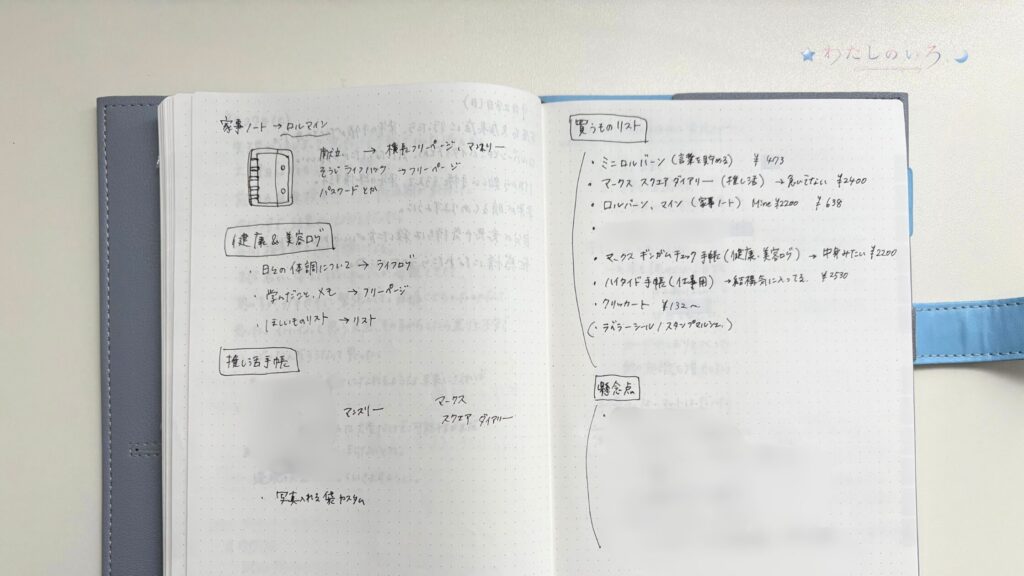 わたしのいろ
家事ノート → ロルマイン
献立 → 横長フリーページ、マンスリー
そうじライフハック → フリーページ
パスワードとか
健康&美容ログ
・日々の体調について → ライフログ
・学んだこと、メモ → フリーページ
・ほしいものリスト → リスト
推し活手帳
マンスリー
マークス
スクエア ダイアリー
・写真入れる袋 カスタム
買うものリスト
・ミニロルバーン (言葉を貯める) ¥473
・マークス スクエアダイアリー (推し活) → 急いでない ¥2400
・ロルバーン、マイン (家事ノート) Mine ¥2200 ¥638
・
・マークス ギンガムチェック手帳 (健康・美容ログ) → 中身みたい ¥2200
・ハイタイド手帳 (仕事用) → 結構気に入ってる ¥2530
・クリッカート ¥132〜
(・ラバーシール / スタンプマルシェ)
懸念点
・